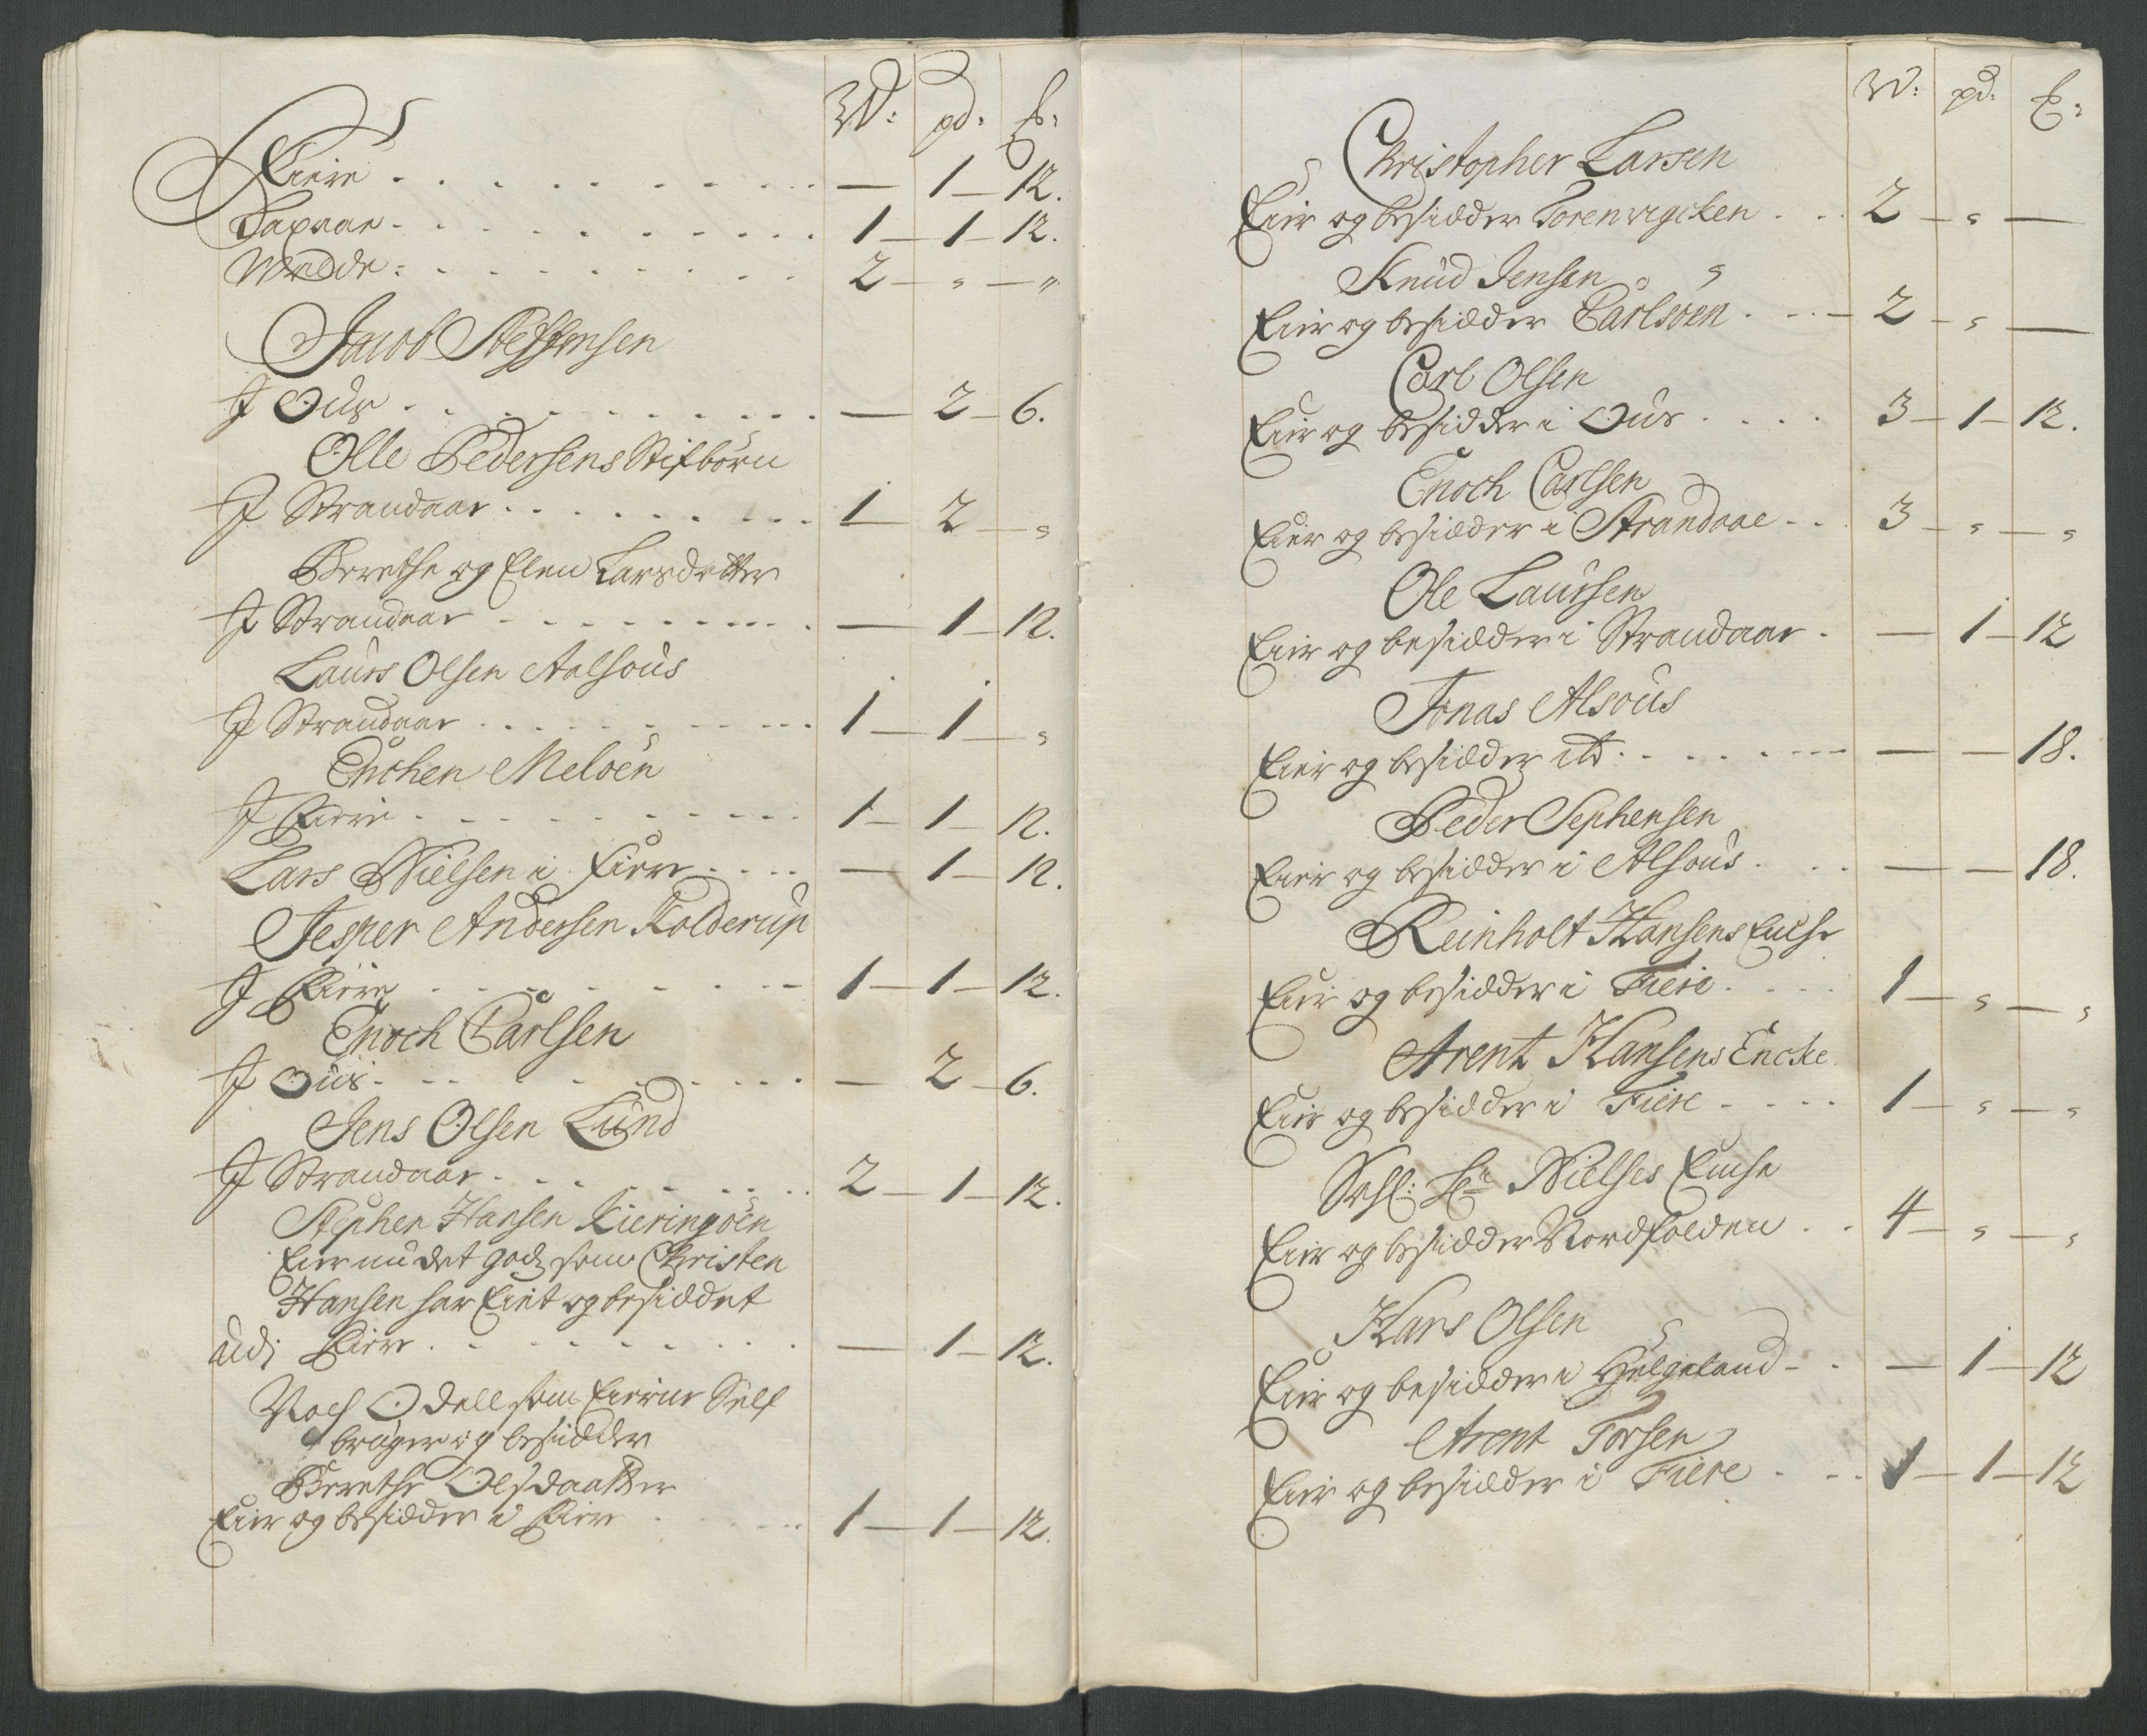 W: pd: ℔:
Fiere . . . . . . . . . — 1 — 12.
Saxaar . . . . . . . . . 1 — 1 — 12.
Wædde . . . . . . . . . 2 — " — "
Jacob Steffensen
J Ous . . . . . . . . . — 2 — 6.
Olle Pedersens Stifbörn
J Strandaar . . . . . . . . 1 — 2 — "
Berethe og Elen Larsdatter
J Strandaar . . . . . . . . — 1 — 12.
Laurs Olsen Aalsous
J Strandaar . . . . . . . . 1 — 1 — "
Enchen Meloen
J Fiere . . . . . . . . . 1 — 1 — 12.
Lars Nielsen i Fiere . . . . — 1 — 12.
Jesper Andersen Kolderup
J Fiere . . . . . . . . 1 — 1 — 12.
Enoch Carlsen
J Ous . . . . . . . . . — 2 — 6.
Jens Olsen Lund
J Strandaar . . . . . . . 2 — 1 — 12.
Stephen Hansen Kieringöen
Eier nu det godz som Christen
Hansen har Eiet og besiddet
udj Fiere . . . . . . . . — 1 — 12.
Noch Odell som Eierne Self
bruger og besidder
Berethe Olsdaatter
Eier og besidder i Fiere . . . 1 — 1 — 12.
W: pd: ℔:
Christopher Larsen
Eier og besidder Torenvigcken . . . 2 — " —
Knud Jensen
Eier og besidder Carlsöen . . . — 2 — " —
Carl Olsen
Eier og besidder i Ous . . . . 3 — 1 — 12.
Enoch Carlsen
Eier og besidder i Strandaae . . . 3 — " — "
Ole Laursen
Eier og besidder i Strandaar . — 1 — 12
Jonas Alsous
Eier og besidder itd . . . . . — — 18.
Peder Sephensen
Eier og besidder i Alsous . . . — — 18.
Reinholt Hansens Enche
Eier og besidder i Fiere . . . . 1 — " — "
Arent Hansens Encke
Eier og besidder i Fiere . . . . 1 — " — "
Sehl: Hr Nielses Enche
Eier og besidder Nordfolden . . 4 — " — "
Hans Olsen
Eier og besidder i Helgeland . . — 1 — 12
Arent Torsen
Eier og besidder i Fiere . . . 1 — 1 — 12